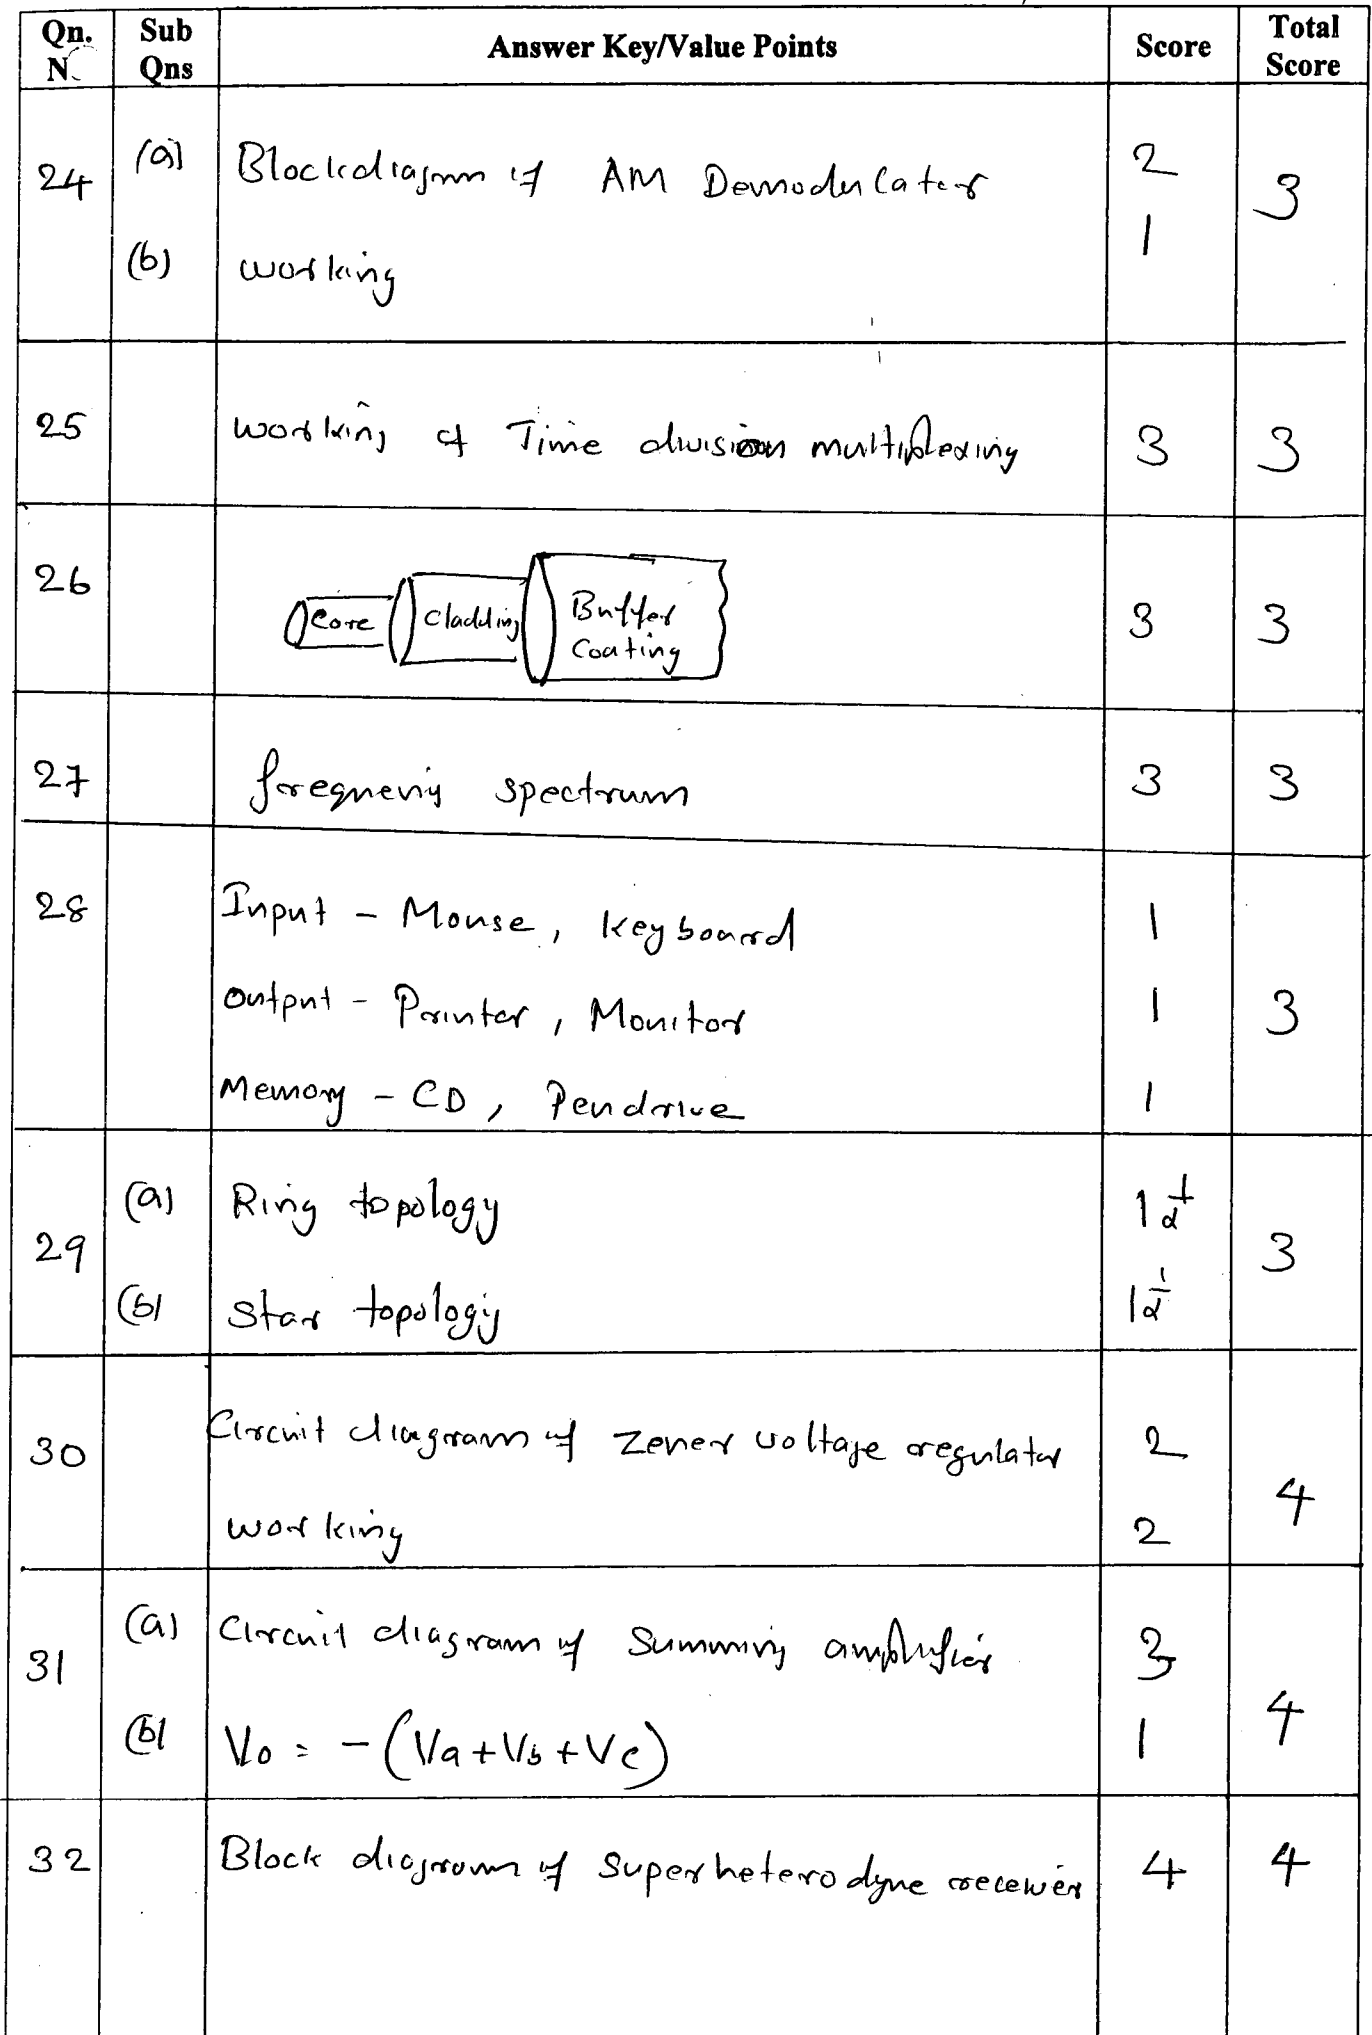 Qn. Sub Answer Key/Value Points Score Total
N Qns Score
24 (a) Blockdiagram of AM Demodulator 2 3
(b) working 1
25 working of Time division multiplexing 3 3
26 Core Cladding Buffer 3 3
Coating
27 frequency spectrum 3 3
28 Input - Mouse, keyboard 1
Output - Printer, Monitor 1 3
Memory - CD, Pendrive 1
29 (a) Ring topology 1 1/2 3
(b) Star topology 1 1/2
30 Circuit diagram of Zener voltage regulator 2 4
working 2
31 (a) Circuit diagram of Summing amplifier 3 4
(b) Vo = - (Va+Vb+Vc) 1
32 Block diagram of Superheterodyne receiver 4 4